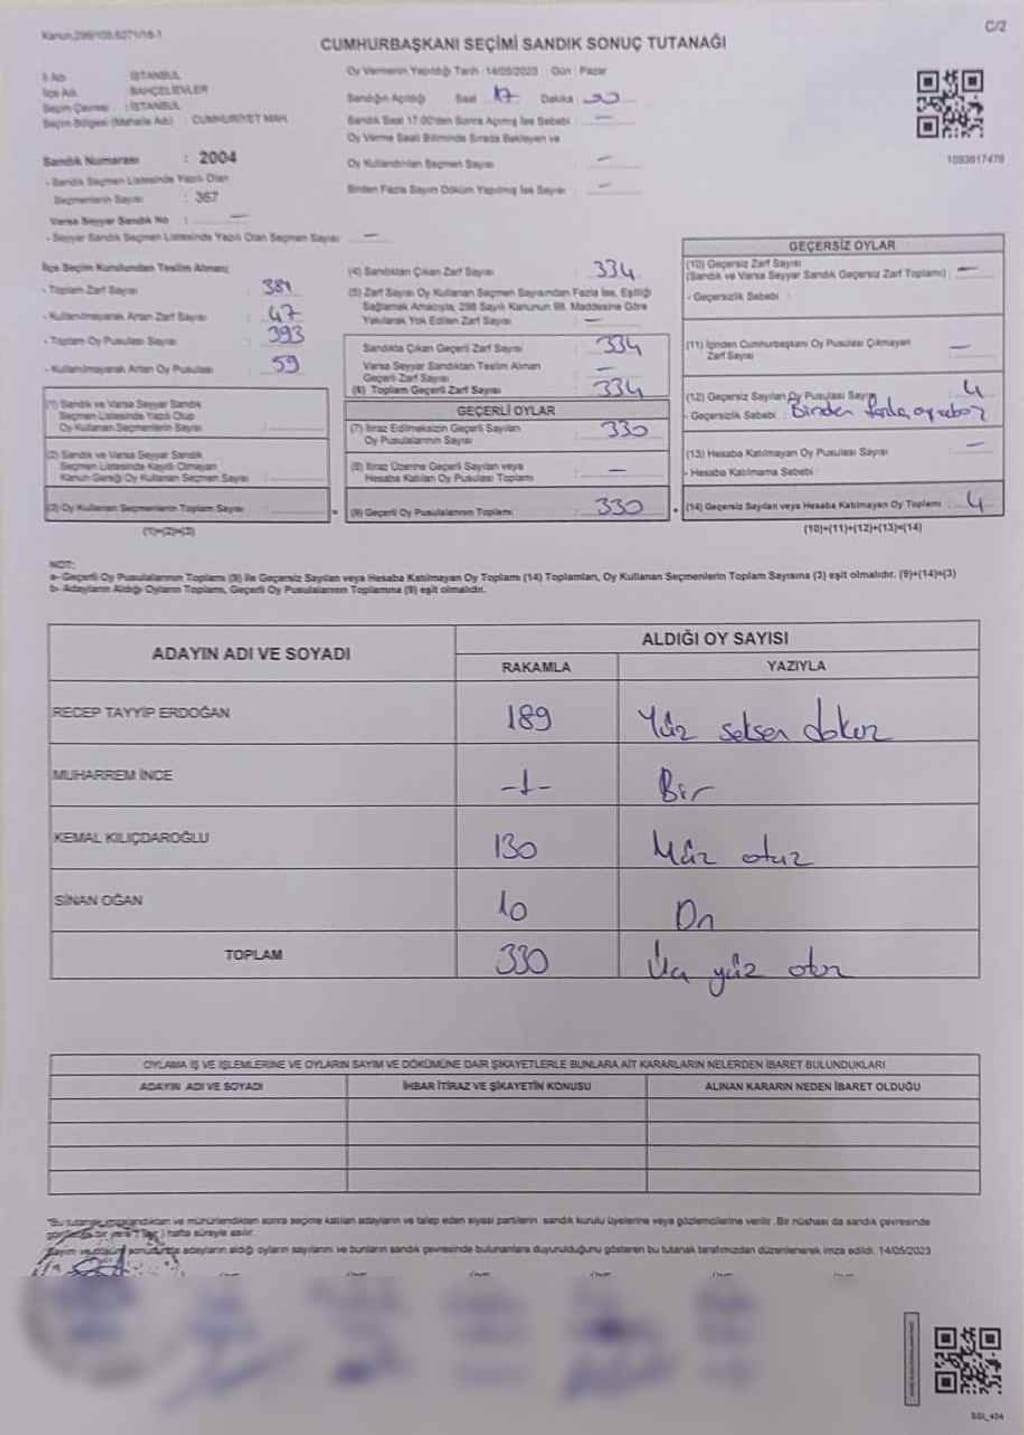 Kanun.298/105,6271/16-1
C/2
CUMHURBAŞKANI SEÇİMİ SANDIK SONUÇ TUTANAĞI
İl Adı : İSTANBUL
İlçe Adı : BAHÇELİEVLER
Seçim Çevresi : İSTANBUL
Seçim Bölgesi (Mahalle Adı) : CUMHURİYET MAH.
Sandık Numarası : 2004
- Sandık Seçmen Listesinde Yazılı Olan
Seçmenlerin Sayısı : 367
Varsa Seyyar Sandık No : —
- Seyyar Sandık Seçmen Listesinde Yazılı Olan Seçmen Sayısı —
Oy Vermenin Yapıldığı Tarih : 14/05/2023 Gün : Pazar
Sandığın Açıldığı Saat 17 Dakika
Sandık Saat 17:00'den Sonra Açılmış İse Sebebi —
Oy Verme Saati Bitiminde Sırada Bekleyen ve
Oy Kullandırılan Seçmen Sayısı —
Birden Fazla Sayım Döküm Yapılmış İse Sayısı —
1093617478
İlçe Seçim Kurulundan Teslim Alınan;
- Toplam Zarf Sayısı : 381
- Kullanılmayarak Artan Zarf Sayısı : 47
- Toplam Oy Pusulası Sayısı : 393
- Kullanılmayarak Artan Oy Pusulası : 59
(1) Sandık ve Varsa Seyyar Sandık
Seçmen Listesinde Yazılı Olup
Oy Kullanan Seçmenlerin Sayısı
(2) Sandık ve Varsa Seyyar Sandık
Seçmen Listesinde Kayıtlı Olmayan
Kanun Gereği Oy Kullanan Seçmen Sayısı
(3) Oy Kullanan Seçmenlerin Toplam Sayısı
(1)+(2)=(3)
(4) Sandıktan Çıkan Zarf Sayısı : 334
(5) Zarf Sayısı Oy Kullanan Seçmen Sayısından Fazla İse, Eşitliği
Sağlamak Amacıyla, 298 Sayılı Kanunun 98. Maddesine Göre
Yakılarak Yok Edilen Zarf Sayısı : —
Sandıkta Çıkan Geçerli Zarf Sayısı : 334
Varsa Seyyar Sandıktan Teslim Alınan
Geçerli Zarf Sayısı : —
(6) Toplam Geçerli Zarf Sayısı : 334
GEÇERLİ OYLAR
(7) İtiraz Edilmeksizin Geçerli Sayılan
Oy Pusulalarının Sayısı : 330
(8) İtiraz Üzerine Geçerli Sayılan veya
Hesaba Katılan Oy Pusulası Toplamı : —
(9) Geçerli Oy Pusulalarının Toplamı : 330
GEÇERSİZ OYLAR
(10) Geçersiz Zarf Sayısı
(Sandık ve Varsa Seyyar Sandık Geçersiz Zarf Toplamı) : —
- Geçersizlik Sebebi :
(11) İçinden Cumhurbaşkanı Oy Pusulası Çıkmayan
Zarf Sayısı : —
(12) Geçersiz Sayılan Oy Pusulası Sayısı : 4
- Geçersizlik Sebebi : Birden fazla oy
(13) Hesaba Katılmayan Oy Pusulası Sayısı : —
- Hesaba Katılmama Sebebi :
(14) Geçersiz Sayılan veya Hesaba Katılmayan Oy Toplamı : 4
(10)+(11)+(12)+(13)=(14)
NOT:
a- Geçerli Oy Pusulalarının Toplamı (9) ile Geçersiz Sayılan veya Hesaba Katılmayan Oy Toplamı (14) Toplamları, Oy Kullanan Seçmenlerin Toplam Sayısına (3) eşit olmalıdır. (9)+(14)=(3)
b- Adayların Aldığı Oyların Toplamı, Geçerli Oy Pusulalarının Toplamına (9) eşit olmalıdır.
ADAYIN ADI VE SOYADI ALDIĞI OY SAYISI
RAKAMLA YAZIYLA
RECEP TAYYİP ERDOĞAN 189 Yüz seksen dokuz
MUHARREM İNCE -1- Bir
KEMAL KILIÇDAROĞLU 130 Yüz otuz
SİNAN OĞAN 10 On
TOPLAM 330 Üç yüz otuz
OYLAMA İŞ VE İŞLEMLERİNE VE OYLARIN SAYIM VE DÖKÜMÜNE DAİR ŞİKAYETLERLE BUNLARA AİT KARARLARIN NELERDEN İBARET BULUNDUKLARI
ADAYIN ADI VE SOYADI İHBAR İTİRAZ VE ŞİKAYETİN KONUSU ALINAN KARARIN NEDEN İBARET OLDUĞU
*Bu tutanak imzalandıktan ve mühürlendikten sonra seçime katılan adayların ve talep eden siyasi partilerin sandık kurulu üyelerine veya gözlemcilerine verilir. Bir nüshası da sandık çevresinde
hafta süreyle asılır.
Sayım ve döküm sonunda adayların aldığı oyların sayılarını ve bunların sandık çevresinde bulunanlara duyurulduğunu gösteren bu tutanak tarafımızdan düzenlenerek imza edildi. 14/05/2023